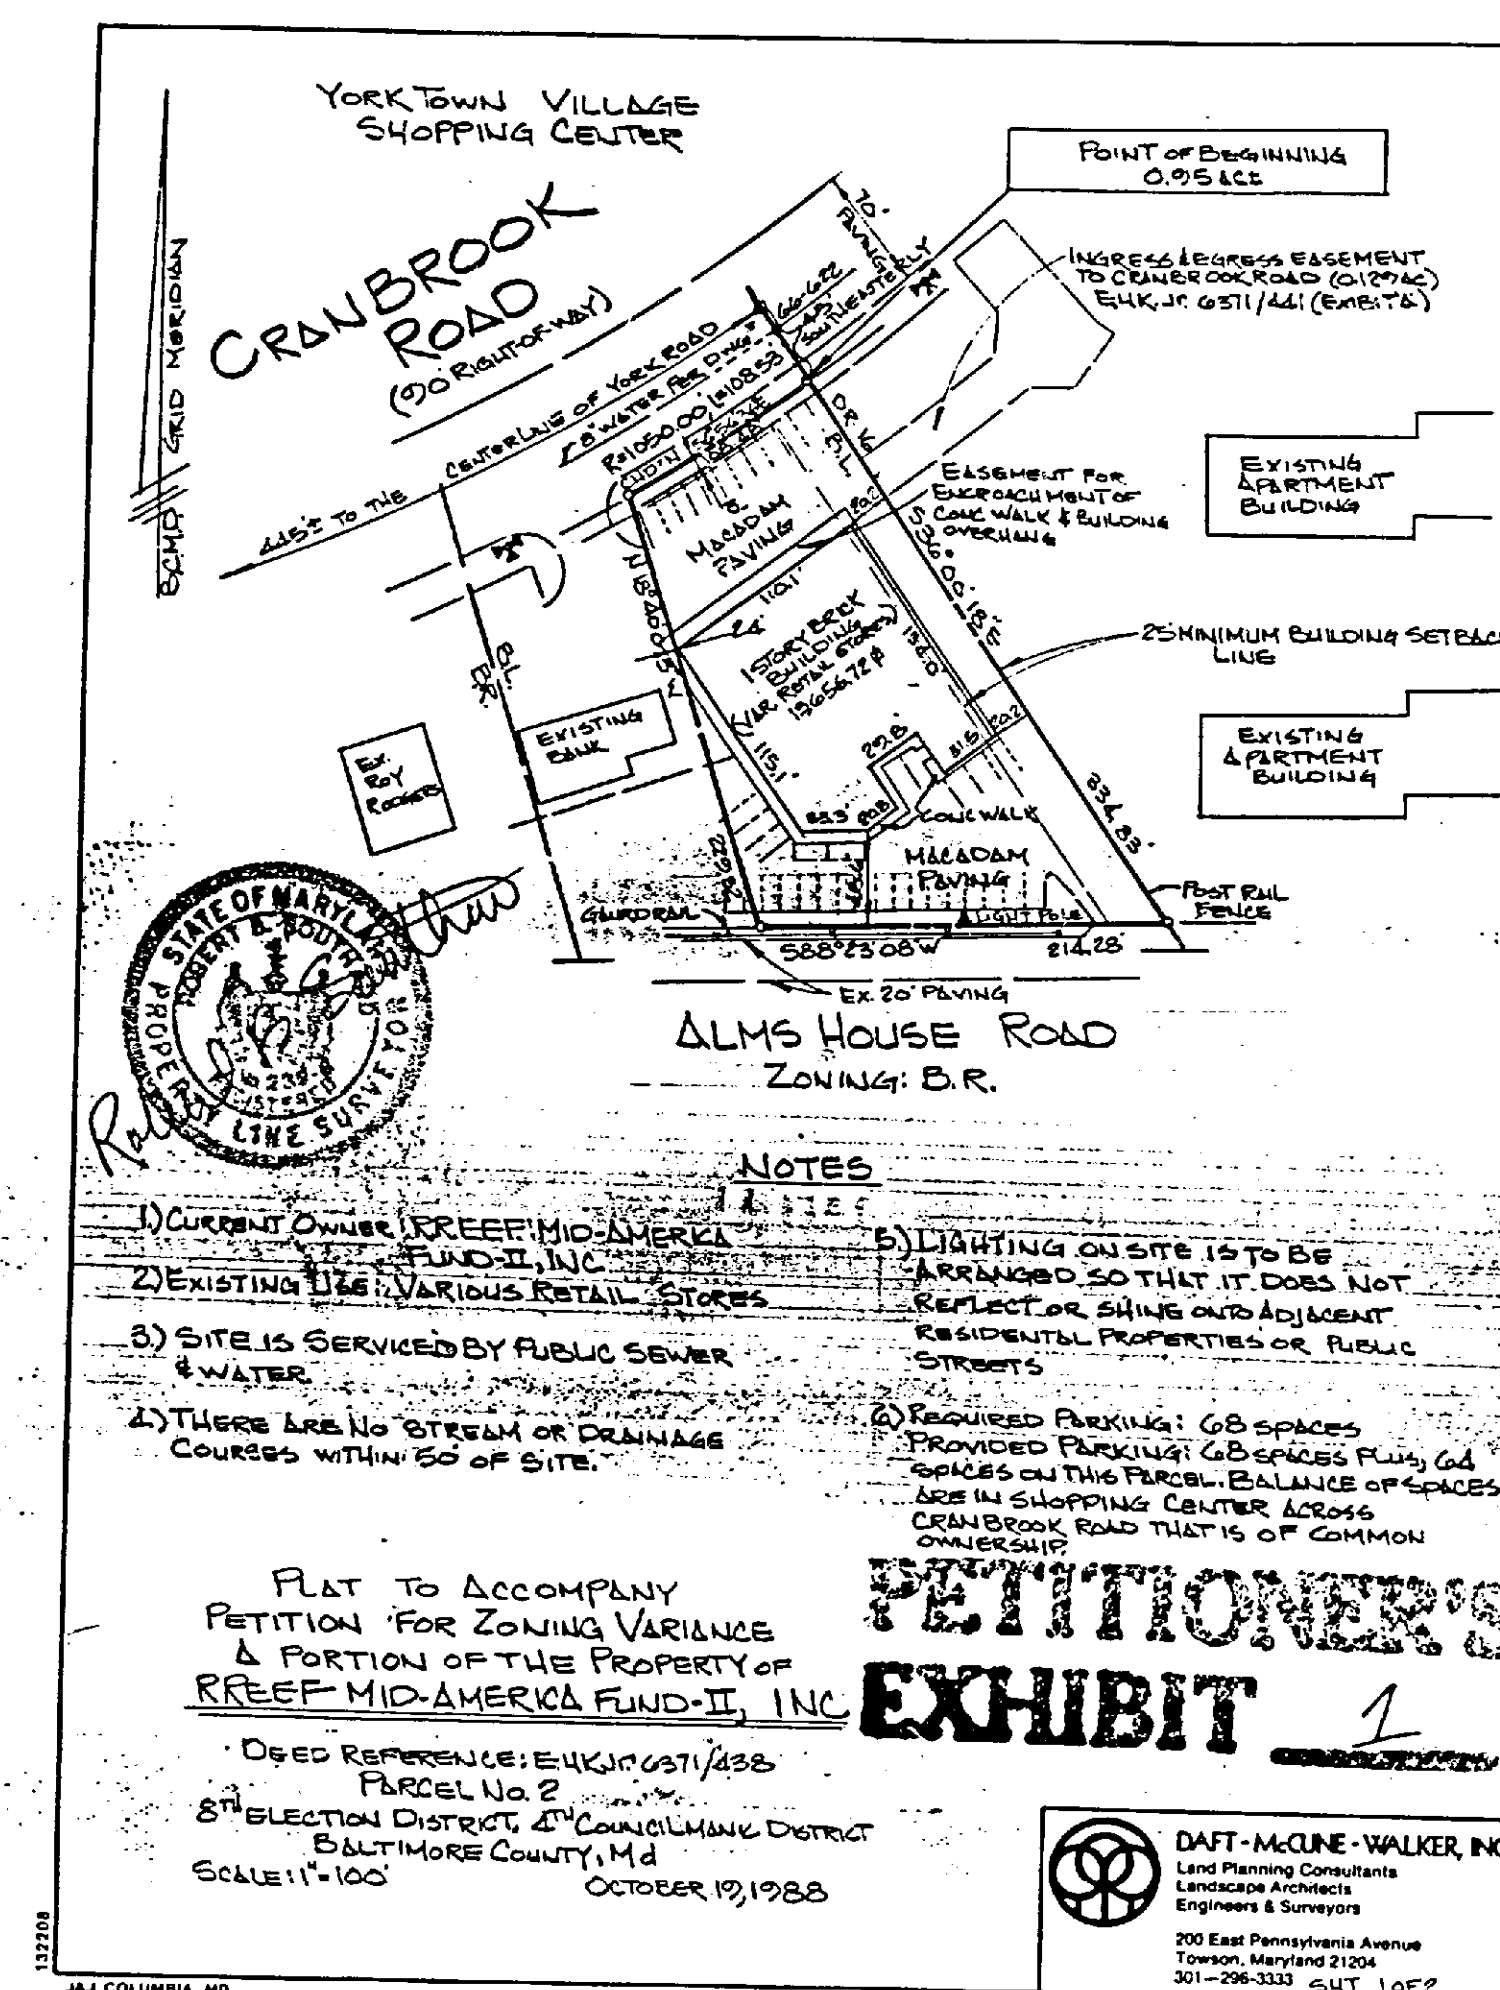 YORKTOWN VILLAGE
SHOPPING CENTER
POINT OF BEGINNING
0.95 AC±
CRANBROOK
ROAD
(90' RIGHT-OF-WAY)
70'
PAVING
B.C.M.D. GRID MERIDIAN
INGRESS & EGRESS EASEMENT
TO CRANBROOK ROAD (0.129 AC)
E.H.K. Jr. 6371/441 (EXIBIT A)
445'± TO THE CENTERLINE OF YORK ROAD
8" WATER PER DWG # 66-622
45'
SOUTHEASTERLY
R=1050.00' L=108.53'
CH'D'N
D.R. 16
B.L.
MACADAM
PAVING
EASEMENT FOR
ENCROACHMENT OF
CONC WALK & BUILDING
OVERHANG
EXISTING
APARTMENT
BUILDING
S 36° 00' 18" E
20.2
N 18° 40' 05" E
110.1'
24'
1 STORY BRICK
BUILDING
(VAR. RETAIL STORES)
134.0'
25' MINIMUM BUILDING SETBACK
LINE
B.L.
B.R.
EXISTING
BANK
EX.
ROY
ROGERS
115.1'
29.8'
31.5
20.2
EXISTING
APARTMENT
BUILDING
334.83'
33.3'
20.8
CONC WALK
MACADAM
PAVING
POST RAIL
FENCE
GUARDRAIL
LIGHT POLE
S88°23'08"W
214.28'
EX. 20' PAVING
ALMS HOUSE ROAD
ZONING: B.R.
STATE OF MARYLAND
ROBERT B. SOUTH
PROPERTY LINE SURVEYOR
NOTES
1.) CURRENT OWNER: RREEF MID-AMERICA
FUND-II, INC
2.) EXISTING USE: VARIOUS RETAIL STORES
3.) SITE IS SERVICED BY PUBLIC SEWER
& WATER
4.) THERE ARE NO STREAM OR DRAINAGE
COURSES WITHIN 50' OF SITE.
5.) LIGHTING ON SITE IS TO BE
ARRANGED SO THAT IT DOES NOT
REFLECT OR SHINE ONTO ADJACENT
RESIDENTAL PROPERTIES OR PUBLIC
STREETS
6) REQUIRED PARKING: 68 SPACES
PROVIDED PARKING: 68 SPACES PLUS, 64
SPACES ON THIS PARCEL. BALANCE OF SPACES
ARE IN SHOPPING CENTER ACROSS
CRANBROOK ROAD THAT IS OF COMMON
OWNERSHIP.
PETITIONER'S
EXHIBIT 1
PLAT TO ACCOMPANY
PETITION FOR ZONING VARIANCE
A PORTION OF THE PROPERTY OF
RREEF MID-AMERICA FUND-II, INC
DEED REFERENCE: E.H.K. Jr. 6371/438
PARCEL NO. 2
8TH ELECTION DISTRICT, 4TH COUNCILMANIC DISTRICT
BALTIMORE COUNTY, Md
SCALE: 1"=100'
OCTOBER 19, 1988
DAFT-McCUNE-WALKER, INC
Land Planning Consultants
Landscape Architects
Engineers & Surveyors
200 East Pennsylvania Avenue
Towson, Maryland 21204
301-296-3333
SHT 1 OF 2
132208
J&J COLUMBIA, MD.